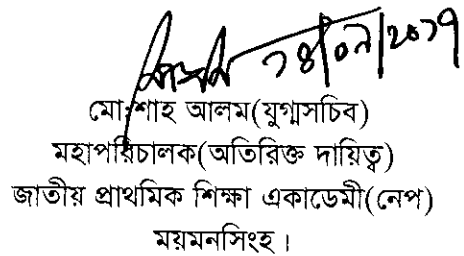 ২৪/০৭/২০১৭
মোঃ শাহ আলম(যুগ্মসচিব)
মহাপরিচালক(অতিরিক্ত দায়িত্ব)
জাতীয় প্রাথমিক শিক্ষা একাডেমী(নেপ)
ময়মনসিংহ।